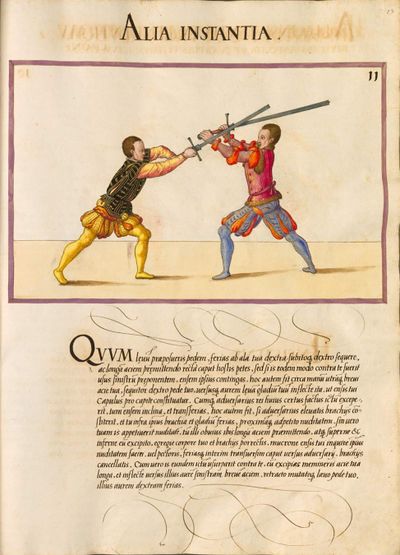 ALIA INSTANTIA.
11
QVVM lęuū praeposueris pedem, ferias ab ala tua dextra subitoq; dextro sequere,
ac longa aciem permittendo recta caput hostis petes, sed si is eodem modo contra te fuerit
usus sinistrū praeponentem, ensem ipsius contingas, hoc autem fit circa manū utraq; breui
acie tua, sequitor dextro pede tuo, uersusq; aurem leua gladiū tuū inflecte ita, ut ensis tui
Capulus pro capite constituatur. Cumq; aduersarius rei huius certus factus ictū excepe-
rit, tum ensem inclina, et transferas, hoc autem fit, si aduersarius eleuatis brachijs co-
stiterit, et tu infra ipsius brachia et gladiū ferias, proximāq; adpetito nuditatem, sim uero
tuam is appetiuerit nuditatē, tu illi obuius ibis longa aciem praemittendo, atq; superne &
inferne eū excipito, eque corpore tuo et brachijs porrectis, mucrone ensis tui inquire ipsius
nuditatem faciei, uel pectoris, feriasq; interim transuersim caput uersus aduersarij, brachijs
cancellatis. Cum uero is eundem ictū usurparit contra te, eū excipias memineris acie tua
longa, et inflecte uersus illius aurē sinistram, breuē aciem, retracto mutatoq; leuo pede tuo,
illius aurem dextram ferias.